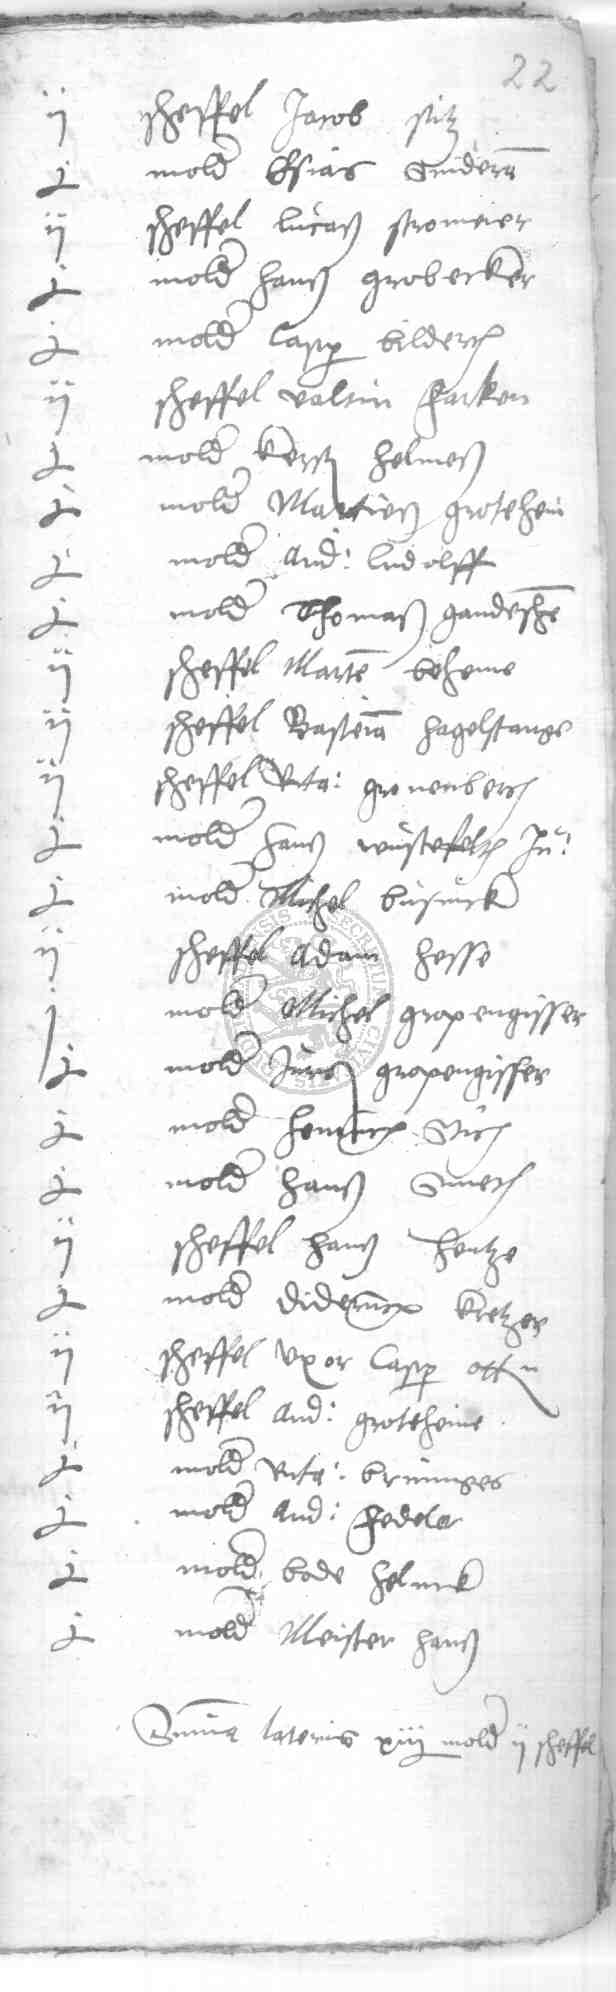 22
ij scheffel Jacob Stitz
j mold Esias Suderā
ij scheffel lucaß stromeier
j mold hanß grobecker
j mold Casp bilderch
ij scheffel valtin Farken
j mold Kerst helmeß
j mold Mattieß grotehein
j mold And: ludolff
j mold Thomaß gandershē
ij scheffel Martē beheme
ij scheffel Basteiā hagelstange
ij scheffel Vrta: gronenberch
j mold hanß wustefelth Ju:
j mold Michel businck
ij scheffel Adam hesse
j mold Michel gropengisser
j mold Jurg gropengisser
j mold henrich
j mold hanß
ij scheffel hanß hentze
j mold diderich kretzer
ij scheffel vxor Casp otten
ij scheffel And: groteheine
j mold Vrta: bruninges
j mold And: Fedeler
j mold bode helmek
j mold Meister hanß
Suma lateris xiij mold ij scheffel